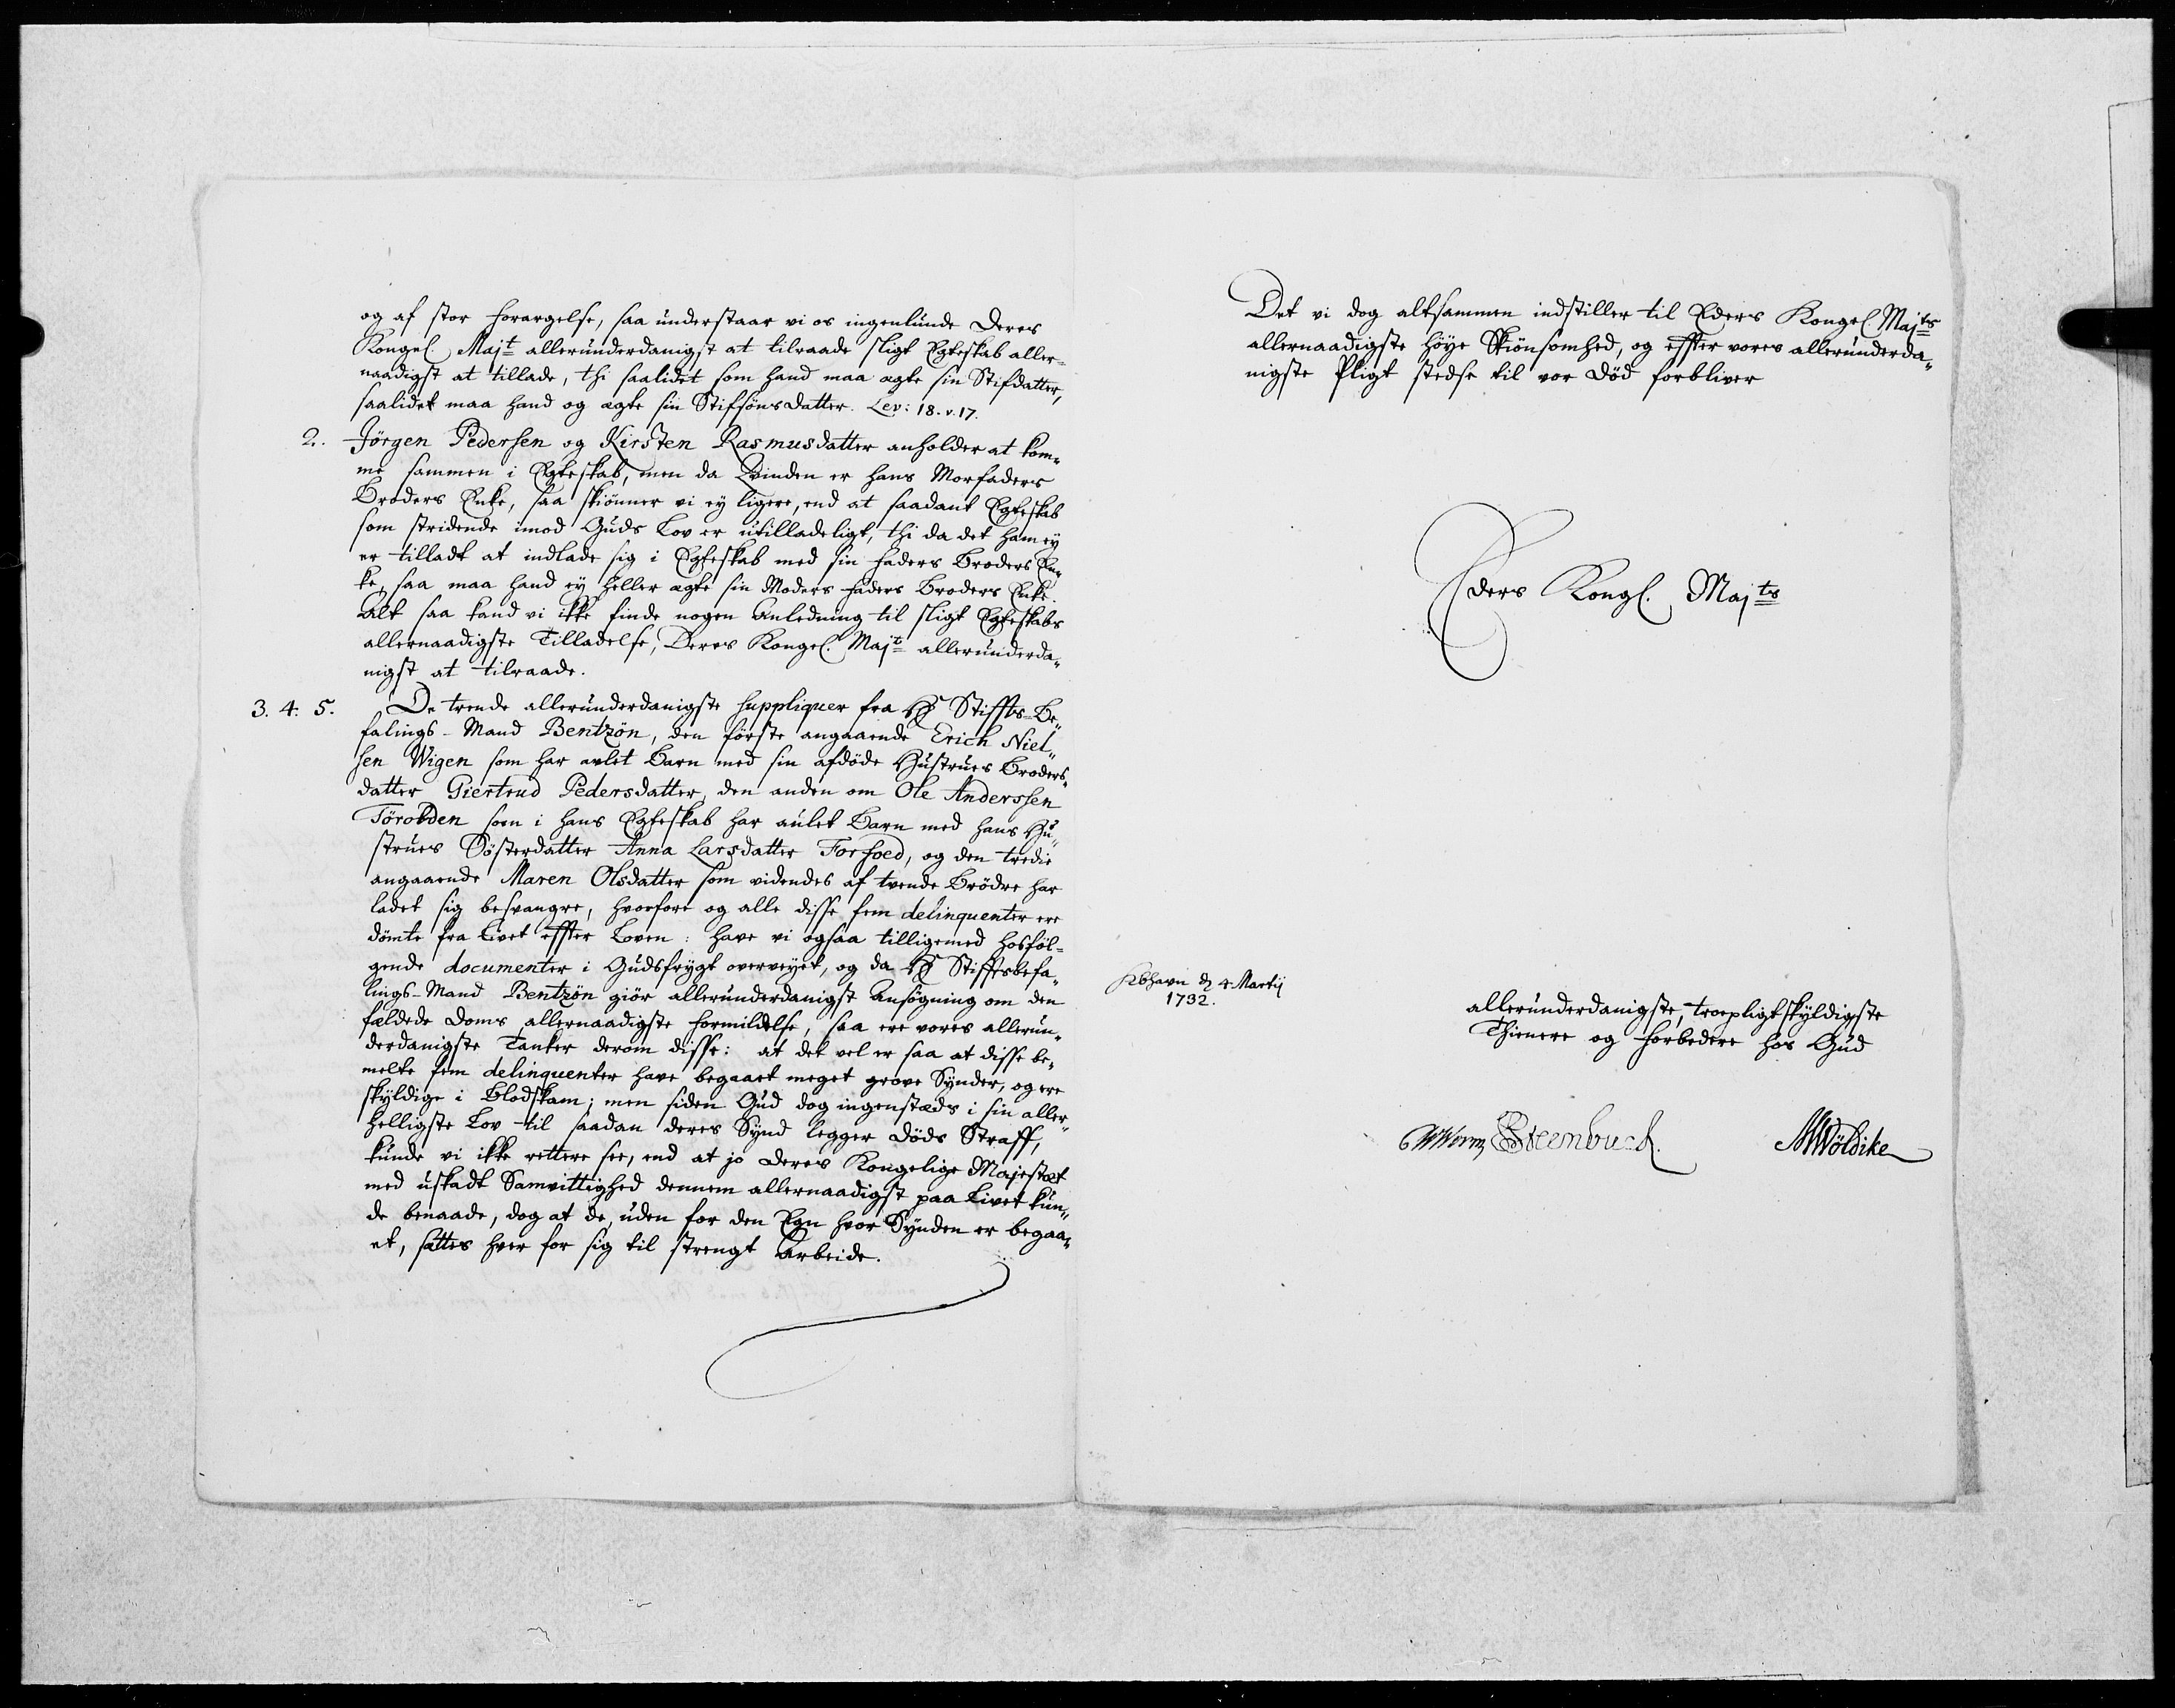 og af stor Forargelse, saa understaar vi os ingenlunde Deres
Kongel. Majt allerunderdanigst at tilraade sligt Egteskab aller-
naadigst at tillade, thi saalidet som hand maa ægte sin Stifdatter,
saalidet maa hand og ægte sin Stifsöns Datter. Lev: 18. v. 17.
2. Jörgen Pedersen og Kirsten Rasmusdatter anholder at kom-
me sammen i Egteskab, men da Qvinden er hans Morfaders
Broders Enke, saa skiönner vi ey ligere, end at saadant Egteskab
som stridende imod Guds Lov er utilladeligt, thi da det ham ey
er tilladt at indlade sig i Egteskab med sin Faders Broders En-
ke, saa maa hand ey heller ægte sin Moders Faders Broders Enke.
Alt saa kand vi ikke finde nogen Anledning til sligt Egteskabs
allernaadigste Tilladelse, Deres Kongel. Majt allerunderda-
nigst at tilraade.
3. 4. 5. De trende allerunderdanigste suppliqver fra Hr Stiffts-Be-
falings-Mand Bentzön, den förste angaaende Erich Niel-
sen Wigen som har avlet Barn med sin afdöde Hustrues Broders-
datter Giertrud Pedersdatter, den anden om Ole Anderssen
Törobden som i hans Egteskab har aulet Barn med hans Hu-
strues Sösterdatter Anna Larsdatter Forsoed, og den tredie
angaaende Maren Olsdatter som videndes af tvende Brödre har
ladet sig besvangre, hvorfore og alle disse fem delinquenter ere
dömte fra Livet effter Loven: have vi ogsaa tilligemed hosföl-
gende documenter i Gudsfrygt overveyet, og da Hr Stifftsbefa-
lings-Mand Bentzön giör allerunderdanigst Ansögning om den
fældede Doms allernaadigste Formildelse, saa ere vores allerun-
derdanigste Tanker derom disse: at det vel er saa at disse be-
melte fem delinquenter have begaaet meget grove Synder, og ere
skyldige i Blodskam; men siden Gud dog ingenstæds i sin aller-
helligste Lov til saadan deres Synd legger Döds Straff,
kunde vi ikke rettere see, end at jo Deres Kongelige Majestæt
med uskadt Samvittighed dennem allernaadigst paa Livet kun-
de benaade, dog at de, uden for den Egn hvor Synden er begaa-
et, sættes hver for sig til strengt Arbeide.
Det vi dog altsammen indstiller til Eders Kongel. Majts
allernaadigste höye Skiönsomhed, og effter vores allerunderda-
nigste Pligt stedse til vor Död forbliver
Eders Kongl. Majts
Kbhavn d. 4 Martij
1732.
allerunderdanigste, troepligtskyldigste
Thienere og Forbedere hos Gud
CWorm Steenbuch. MWöldike